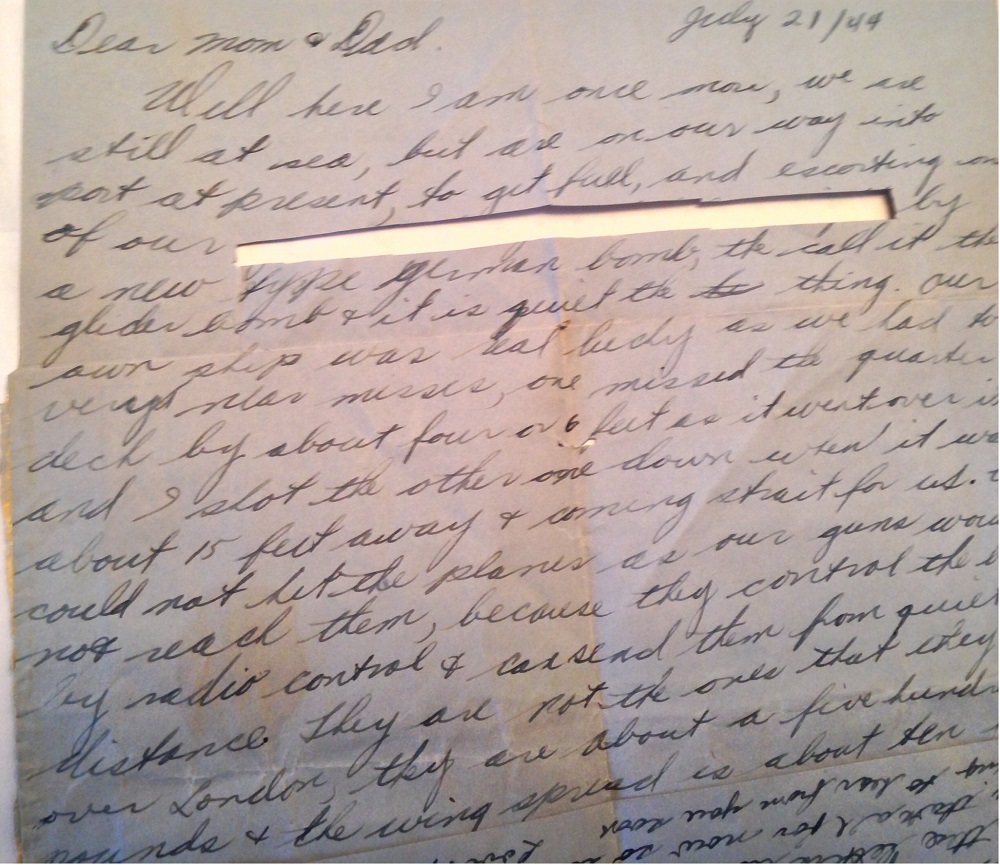 July 21/44
Dear Mom & Dad.
Well here I am once more, we are
still at sea, but are on our way into
port at present, to get full, and escorting on
of our by
a new type german bomb, the call it the
glider bomb & it is quiet the thing. our
own ship was real lucky as we had to
very near misses, one missed the quarter
deck by about four or 6 feet as it went over
and I shot the other one down when it wa
about 15 feet away & coming strait for us.
could not hit the planes as our guns wou
not reach them, because they control the
by radio control & can send them from quiet
distance. They are not the ones that they
over London, they are about a five hundr
pounds & the wing spread is about ten
to hear from you soon
for now so